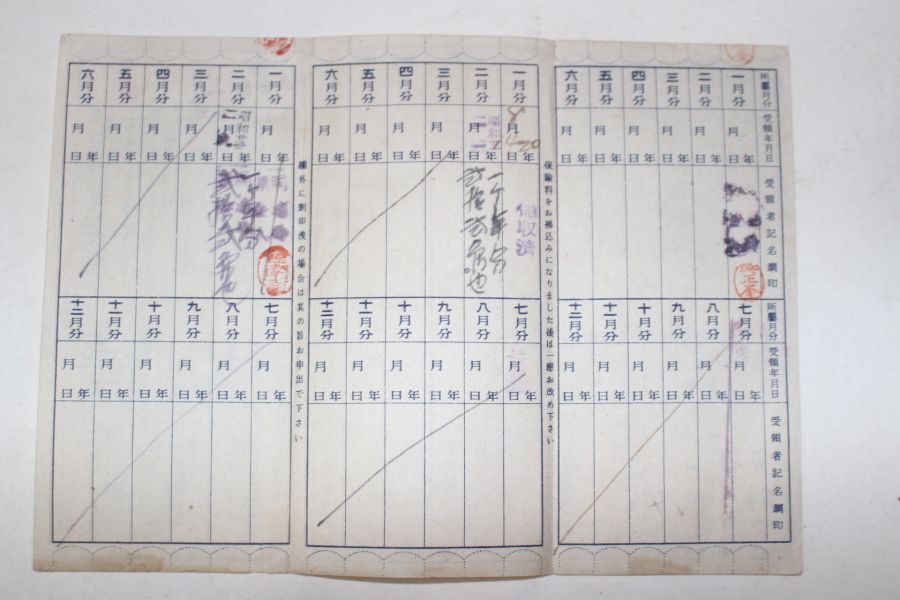 所屬月分
一月分
二月分
三月分
四月分
五月分
六月分
受領年月日
年 月 日
年 月 日
年 月 日
年 月 日
年 月 日
年 月 日
受領者記名調印
所屬月分
七月分
八月分
九月分
十月分
十一月分
十二月分
受領年月日
年 月 日
年 月 日
年 月 日
年 月 日
年 月 日
年 月 日
受領者記名調印
保險料をお拂込みになりました後は一應お改め下さい
一月分
二月分
三月分
四月分
五月分
六月分
年 月 日
年 月 日
年 月 日
年 月 日
年 月 日
年 月 日
8
20
昭和
領收濟
一ケ年分
弐拾弐円也
七月分
八月分
九月分
十月分
十一月分
十二月分
年 月 日
年 月 日
年 月 日
年 月 日
年 月 日
年 月 日
欄外に割印洩の場合は其の旨お申出で下さい
一月分
二月分
三月分
四月分
五月分
六月分
年 月 日
年 月 日
年 月 日
年 月 日
年 月 日
年 月 日
昭和
一ケ年分
弐拾弐円也
七月分
八月分
九月分
十月分
十一月分
十二月分
年 月 日
年 月 日
年 月 日
年 月 日
年 月 日
年 月 日